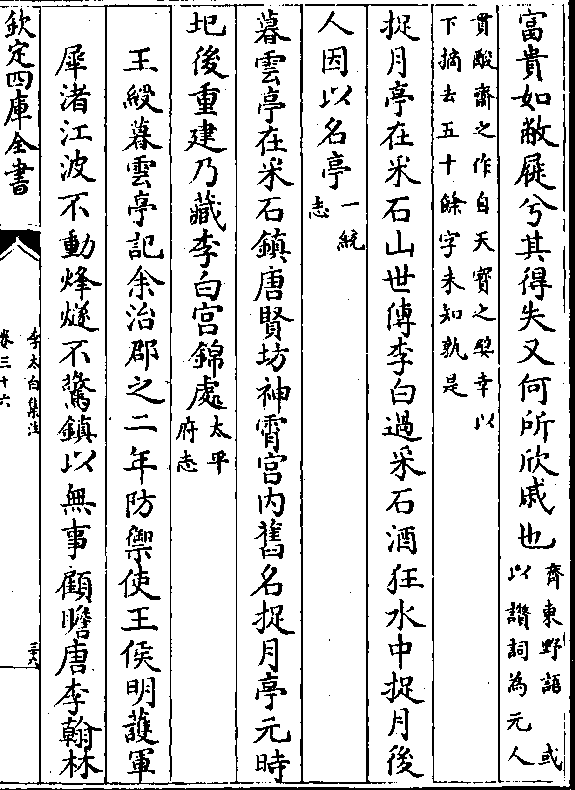 富貴如敝屣兮其得失又何所欣戚也
齊東野語 或
以讚詞為元人
貫酸齋之作自天寳之嬖幸以
下摘去五十餘字未知孰是
捉月亭在采石山世傳李白過采石酒狂水中捉月後
人因以名亭
一統
志
暮雲亭在采石鎮唐賢坊神霄宫内舊名捉月亭元時
圯後重建乃藏李白宫錦處
太平
府志
王暮雲亭記余治郡之二年防禦使王侯明護軍
犀渚江波不動烽燧不驚鎮以無事顧瞻唐李翰林
欽定四庫全書
李太白集注
卷三十六